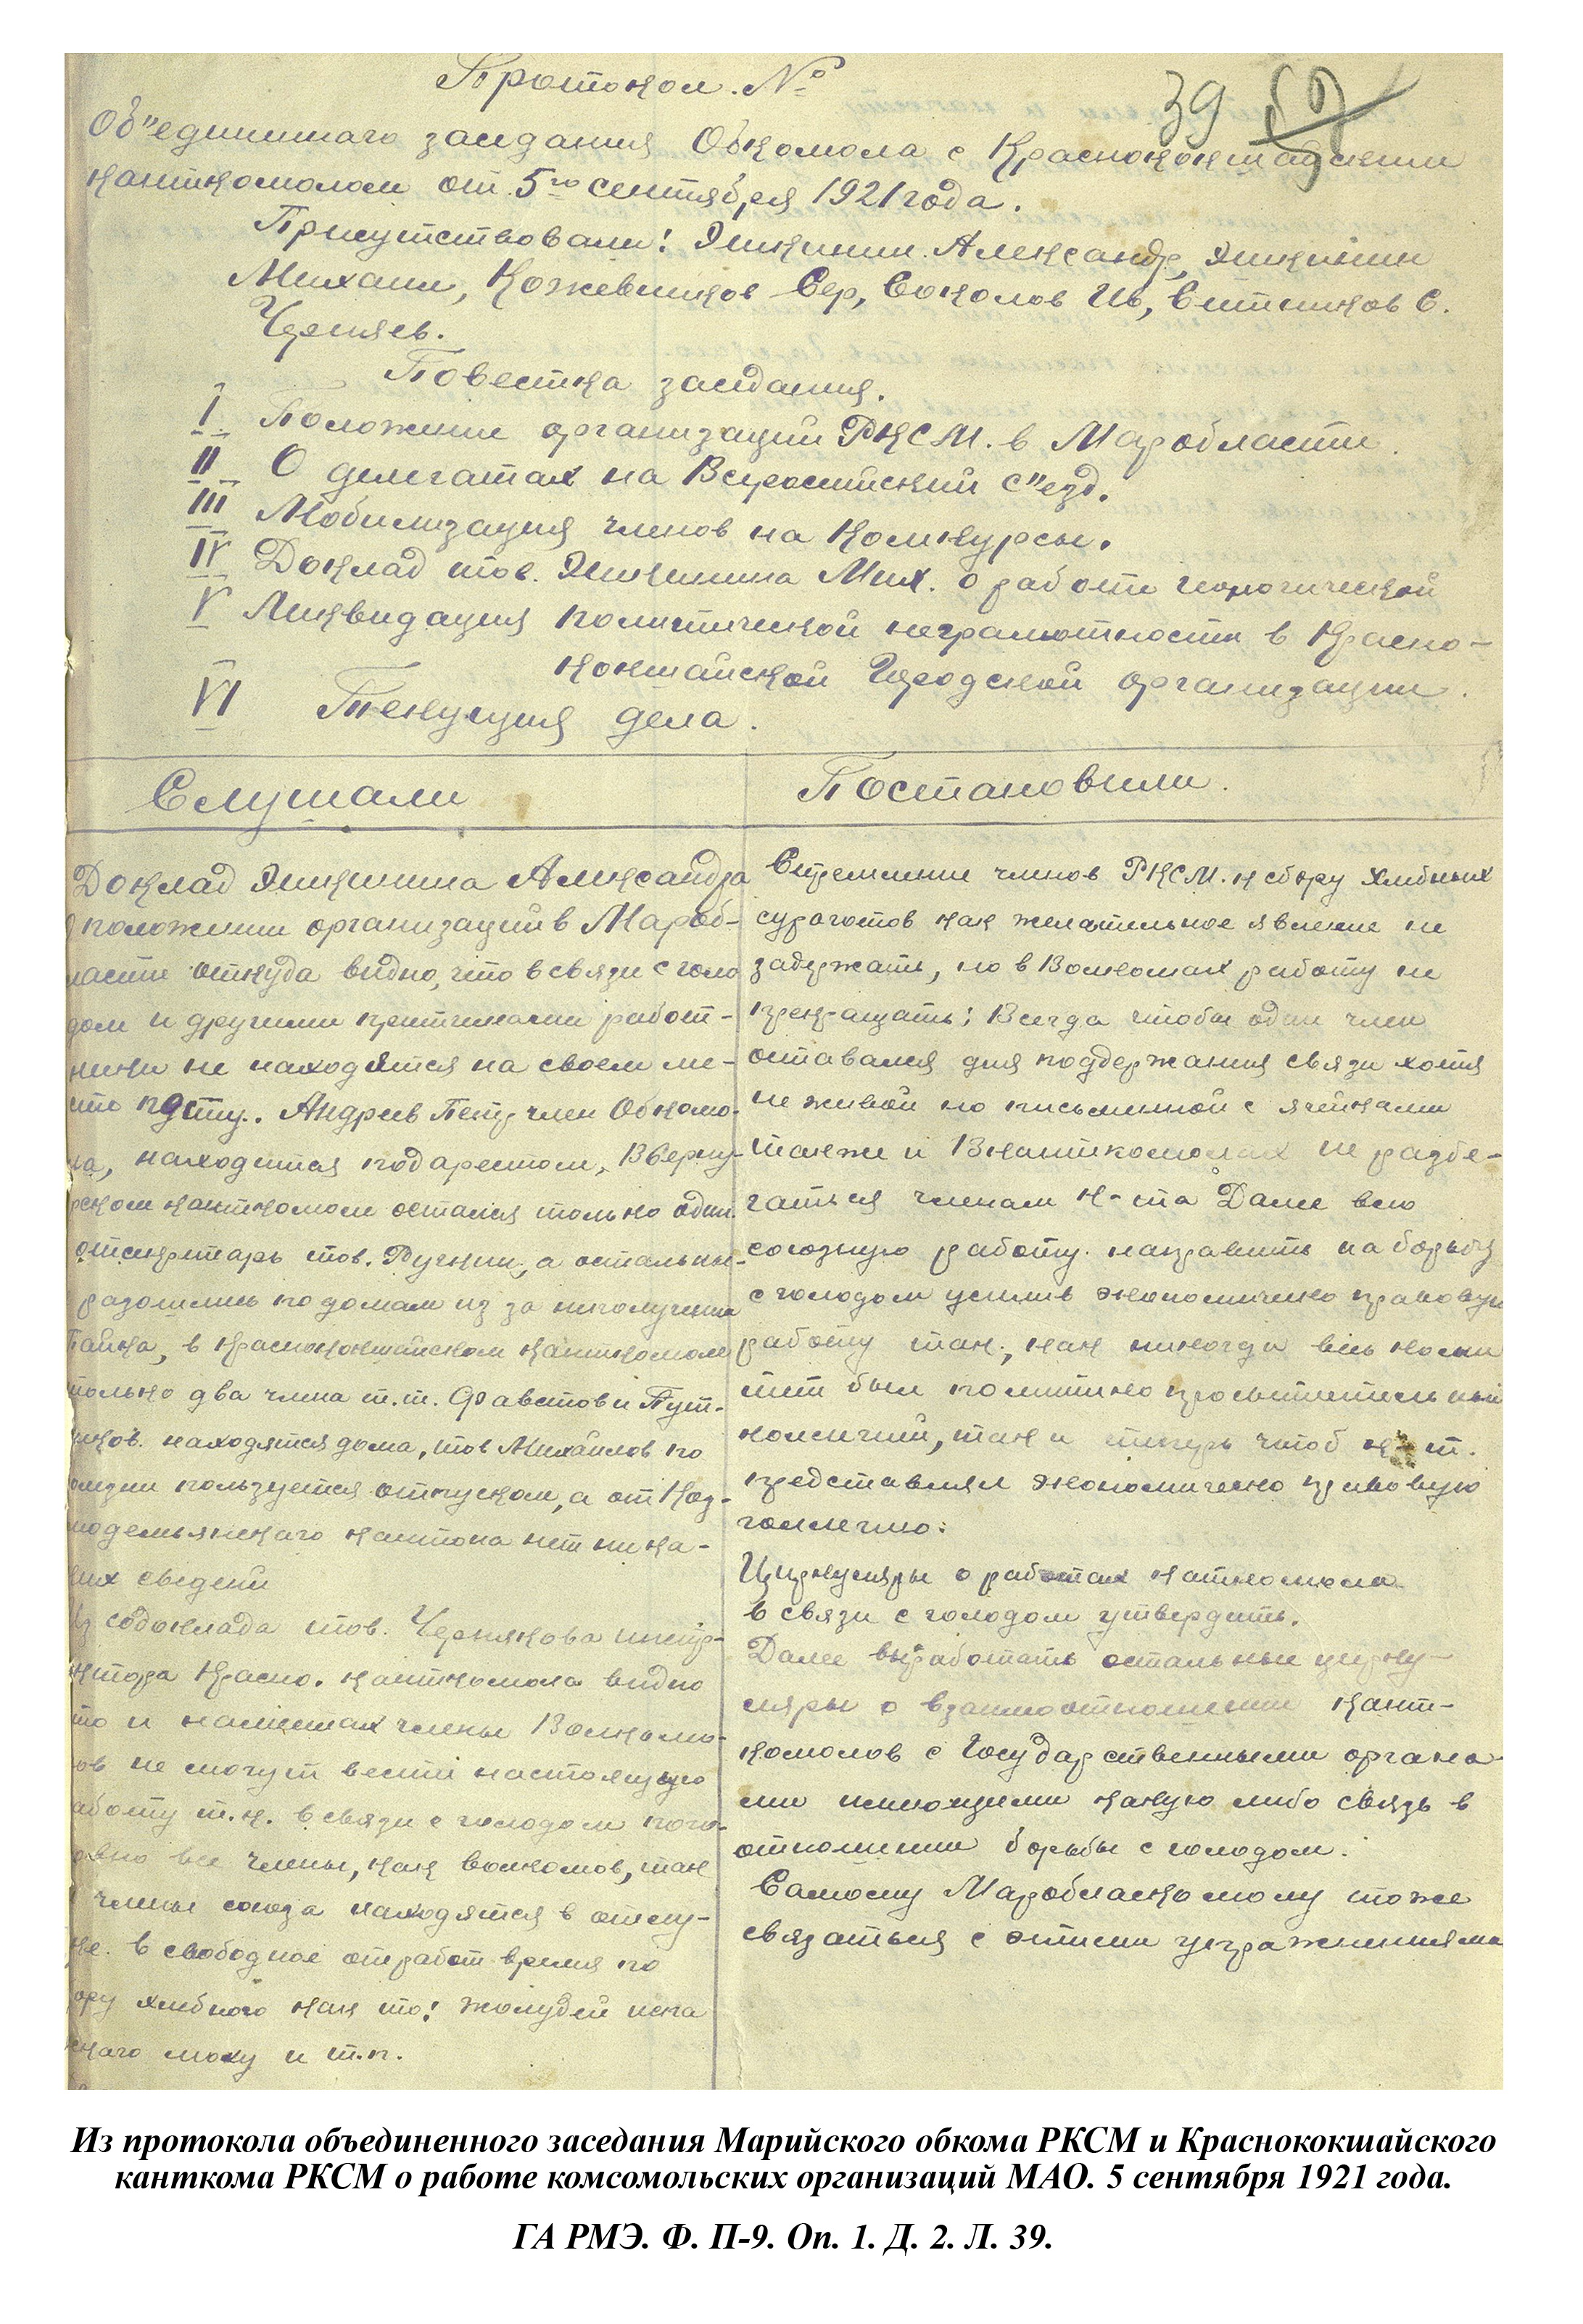 Протокол. №
39
Об"единеннаго заседания Обкомола с Краснококшайским
канткомолом от 5го сентября 1921 года.
Присутствовали: Александр,
Михаил, Кожевников Сер, Соколов Ив, Ситников С.
Черняев.
Повестка заседания.
I. Положение организаций РКСМ. в Маробласти.
II О делегатах на Всероссийский с"езд.
III Мобилизация членов на Комкурсы.
IV Доклад тов. Мих. о работе
V Ликвидация политической неграмотности в Красно-
кокшайской Городской организации.
VI Текущия дела.
Слушали
Постановили.
Доклад Александра
о положении организаций в Мароб-
ласти откуда видно, что в связи с голо
дом и другими причинами работ-
ники не находятся на своем ме-
сте посту. Андреев Петр член Обкомо-
ла, находится под арестом, В Серну-
рском канткомоле остался только один
отсекретарь тов. Ручкин, а остальные
разошлись по домам из за неполучения
Пайка, в Краснококшайском канткомоле
только два члена т.т. Фавстов и Пут-
находятся дома, тов Михайлов по
пользуется отпуском, а от Коз-
модемьянскаго кантона нет ника-
ких сведений
Из содоклада тов. Чернякова инстру-
ктора Красно. канткомола видно
что и на местах члены Волкомо-
лов не могут вести настоящую
работу т.к. в связи с голодом пого-
ловно все члены, как волкомов, так
и члены союза находятся в отпу-
ске. в свободное от работ время по
хлебного как то: жолудей
моху и т.п.
Стремление членов РКСМ. к сбору хлебных
сурогатов как желательное явление не
задержать, но в Волкомах работу не
прекращать; Всегда чтобы один член
оставался для поддержания связи хотя
не живой но письменной с ячейками
также и В канткомолах не разбе-
гаться членам к-та Далее всю
союзную работу направить на борьбу
с голодом усилив экономическо правовую
работу так, как никогда весь коми
тет был политико просветительный
коллегий, так и теперь чтоб к-т.
представлял экономическо правовую
коллегию.
Циркуляры о работах канткомола
в связи с голодом утвердить.
Далее выработать остальные цирку-
ляры о взаимоотношении кант-
комолов с Государственными органа
ми имеющими какую либо связь в
отношении борьбы с голодом.
Самому Маробласкомолу тоже
связаться с этими учреждениями
Из протокола объединенного заседания Марийского обкома РКСМ и Краснококшайского
канткома РКСМ о работе комсомольских организаций МАО. 5 сентября 1921 года.
ГА РМЭ. Ф. П-9. Оп. 1. Д. 2. Л. 39.